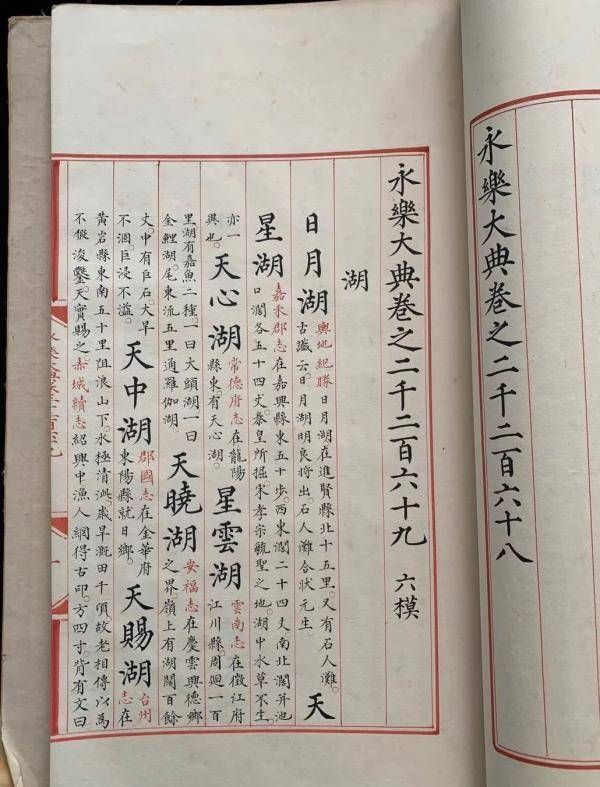 永樂大典卷之二千二百六十八
永樂大典卷之二千二百六十九 六模
湖
日月湖 輿地紀勝日月湖在進賢縣北十五里。又有石人灘。
古讖云。日月湖明良將出。石人灘合狀元生。 天
星湖 嘉禾郡志在嘉興縣東五十步。西東濶二十四丈南北濶并池
口濶各五十四丈。秦皇所掘。宋孝宗毓聖之地。湖中水草不生。
亦一
異也。 天心湖 常德府志在龍陽
縣東有天心湖。 星雲湖 雲南志在徵江府
江川縣周廻一百
里湖有嘉魚二種。一曰大頭湖一曰
金鯉湖。尾東流五里通羅伽湖。 天曉湖 安福志在慶雲興德鄉
之界。嶺上有湖闊百餘
丈。中有巨石大旱
不涸巨浸不溢。 天中湖 郡國志在金華府
東陽縣就日鄉。 天賜湖 台州
志在
黃岩縣東南五十里阻浪山下。水極清洌歲旱溉田千頃故老相傳以為
不假浚鑿。天實賜之。赤城續志紹興中漁人網得古印。方四寸。背有文曰